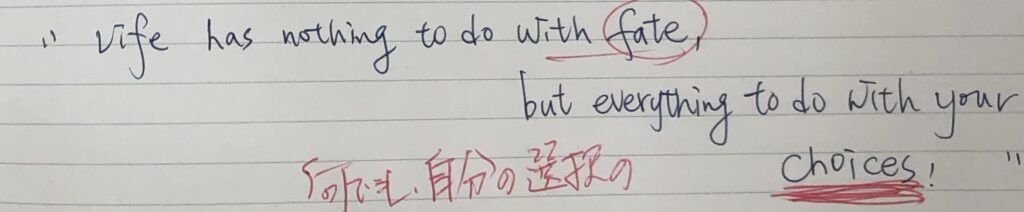 " Life has nothing to do with fate,
but everything to do with your
choices! "
何でも、自分の選択の